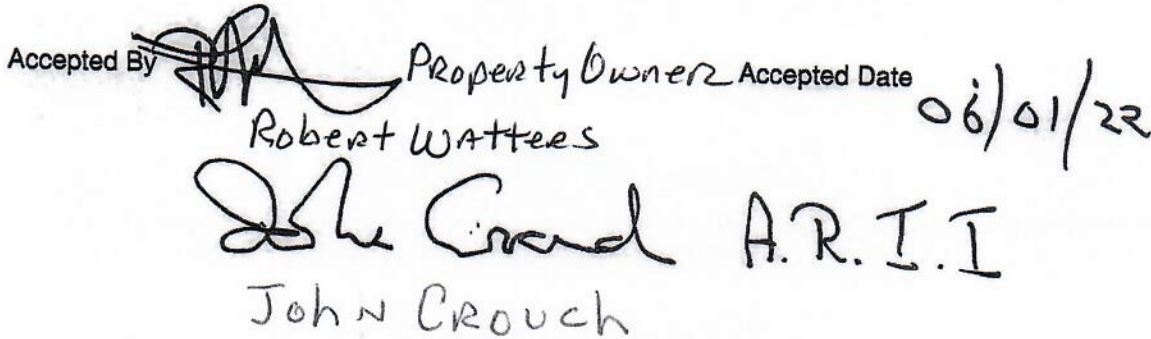 Accepted By Property Owner Accepted Date 06/01/22
Robert Watters
John Crouch A.R.I.I
John Crouch